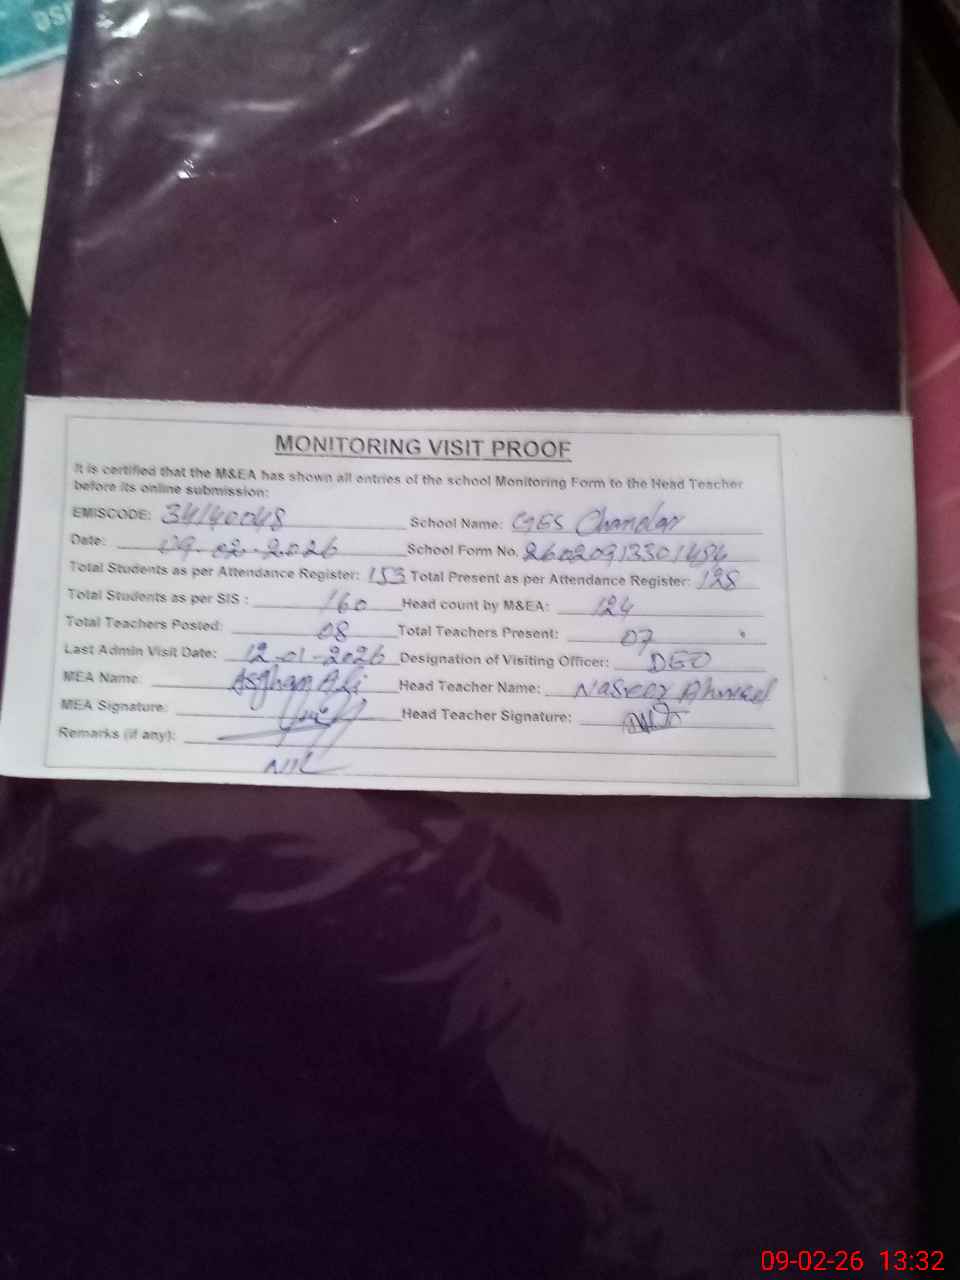 MONITORING VISIT PROOF
It is certified that the M&EA has shown all entries of the school Monitoring Form to the Head Teacher
before its online submission:
EMISCODE: 34140048 School Name: GES Chandar
Date: 09-02-2026 School Form No. 26020913301484
Total Students as per Attendance Register: 153 Total Present as per Attendance Register: 128
Total Students as per SIS : 160 Head count by M&EA: 124
Total Teachers Posted: 08 Total Teachers Present: 07
Last Admin Visit Date: 12-01-2026 Designation of Visiting Officer: DEO
MEA Name: Asghar Ali Head Teacher Name: Naseer Ahmad
MEA Signature: Head Teacher Signature:
Remarks (if any):
NIL
09-02-26 13:32